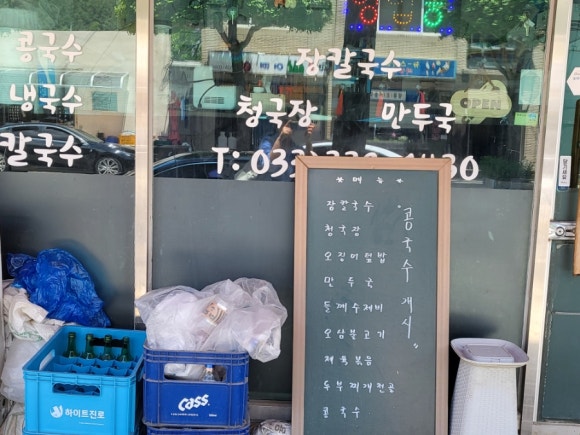 콩국수
냉국수
칼국수
장칼국수
청국장
만두국
OPEN
T: 033
30
메뉴
장칼국수
청국장
오징어덮밥
만두국
들깨수제비
오삼불고기
제육볶음
두부찌개전골
콩국수
"콩국수 개시"
하이트진로
Cass